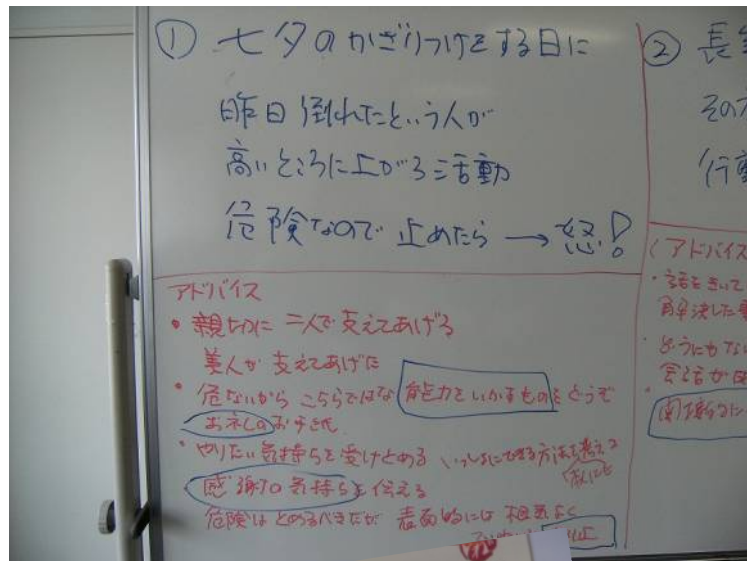 ① 七夕のかざりつけをする日に
昨日倒れたという人が
高いところに上がる活動
危険なので止めたら → 怒!
アドバイス
・親切に 二人で支えてあげる
美人が支えてあげた
・危ないから こちらではな 能力をいかすものをどうぞ
お礼のお手紙
・やりたい気持ちを受けとめる いっしょにできる方法を考える
感謝の気持ちを伝える
危険はとめるべきだが 表面的には 相手よく
② 長
その
行動
(アドバイス
・話をきいて
解決した
・どうにもな
会話が
間接的に